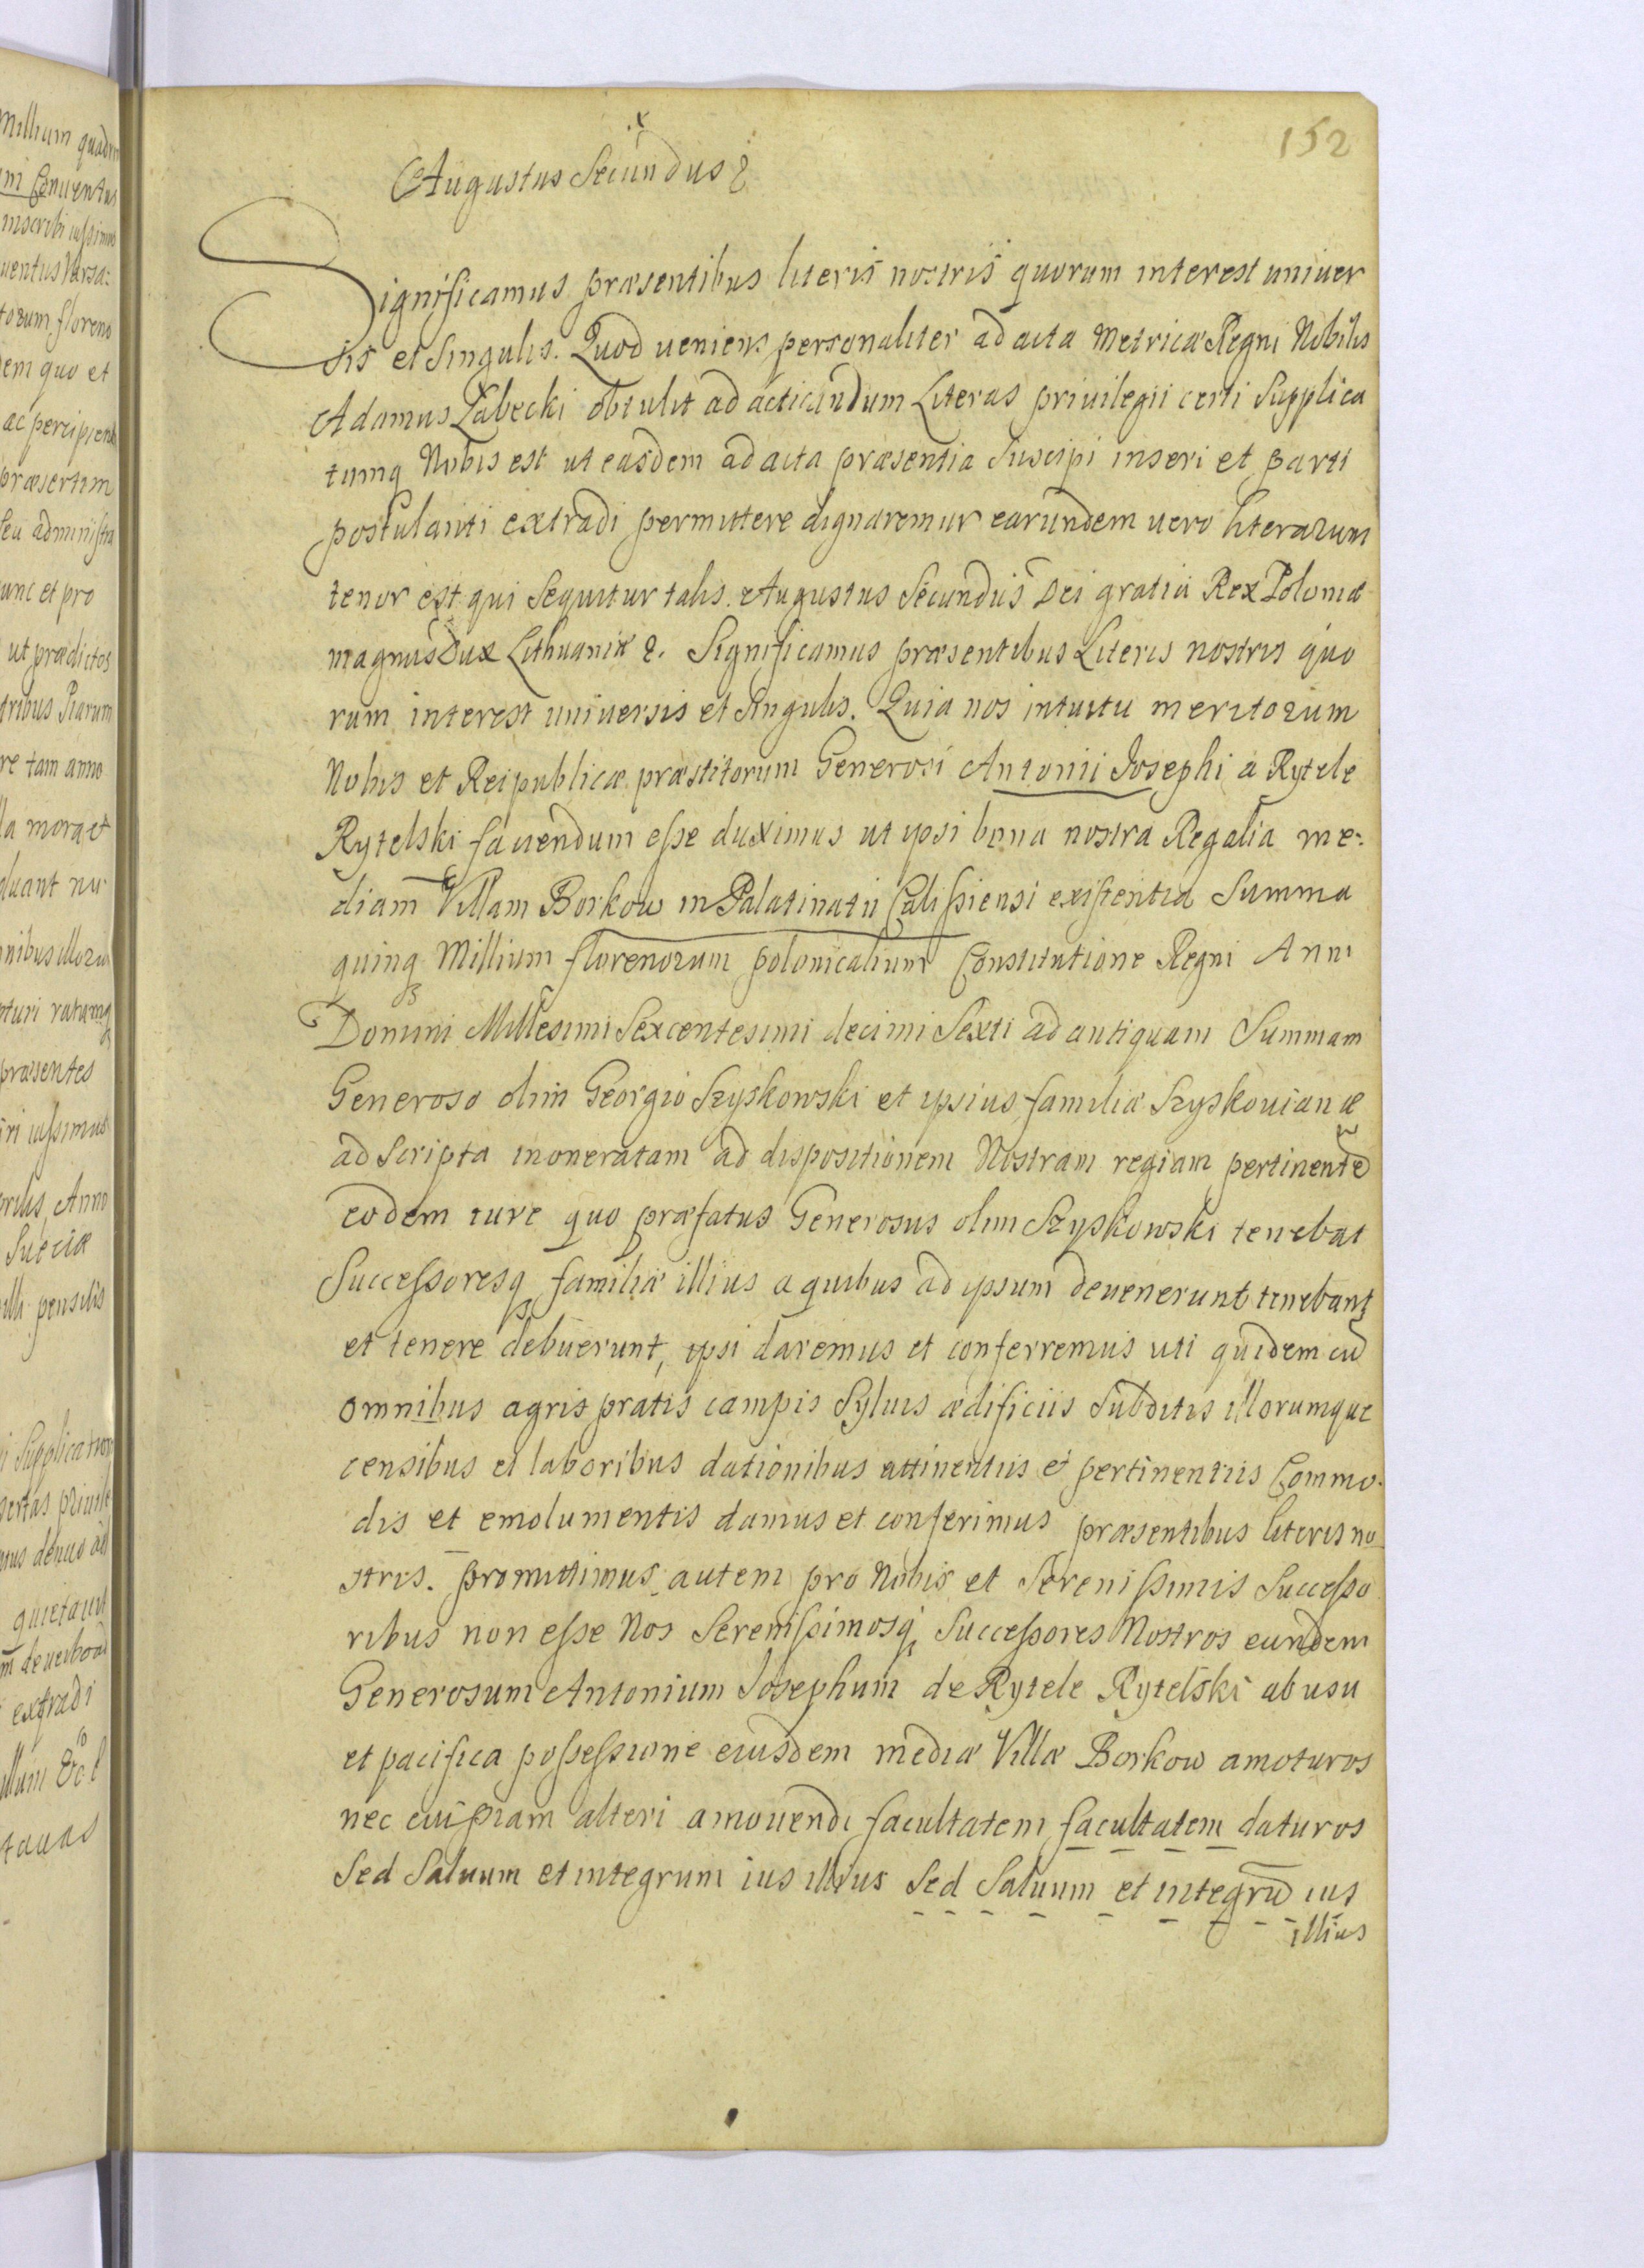 152
Augustus Secundus &
Significamus præsentibus literis nostris quorum interest univer
sis et singulis. Quod ueniens personaliter ad acta Metricæ Regni Nobilis
Adamus Łabecki obtulit ad acticandum Literas priuilegii certi Supplica
tumq Nobis est ut easdem ad acta præsentia suscipi inseri et parti
postulanti extradi permittere dignaremur earundem uero literarum
tenor est qui sequitur talis. Augustus Secundus Dei gratia Rex Poloniæ
magnus Dux Lithuaniæ &. Significamus præsentibus Literis nostris quo
rum interest uniuersis et singulis. Quia nos intuitu meritorum
Nobis et Reipublicæ præstitorum Generosi Antonii Josephi a Rytele
Rytelski fauendum esse duximus ut ipsi bona nostra Regalia me:
diam Villam Borkow in Palatinatu Calissiensi existentia Summa
quinq Millium florenorum polonicalium Constitutione Regni Anni
Domini Millesimi Sexcentesimi decimi Sexti ad antiquam Summam
Generoso olim Georgio Szyskowski et ipsius familiæ Szyskouianæ
ad scripta inoneratam ad dispositionem Nostram regiam pertinentē
eodem iure quo præfatus Generosus olim Szyskowski tenebat
Successoresq familiæ illius a quibus ad ipsum deuenerunt tenebant
et tenere debuerunt, ipsi daremus et conferremus uti quidem cū
omnibus agris pratis campis syluis ædificiis subditis illorumque
censibus et laboribus dationibus attinentiis et pertinentiis Commo.
dis et emolumentis damus et conferimus præsentibus literis no
stris. promittimus autem pro Nobis et Serenissimis Successo
ribus non esse Nos Serenissimosq Successores Nostros eundem
Generosum Antonium Josephum de Rytele Rytelski ab usu
et pacifica possessione eiusdem mediæ Villæ Borkow amoturos
nec cuipiam alteri amouendi facultatem facultatem daturos
Sed Saluum et integrum ius illius Sed Saluum et integrū ius
illius